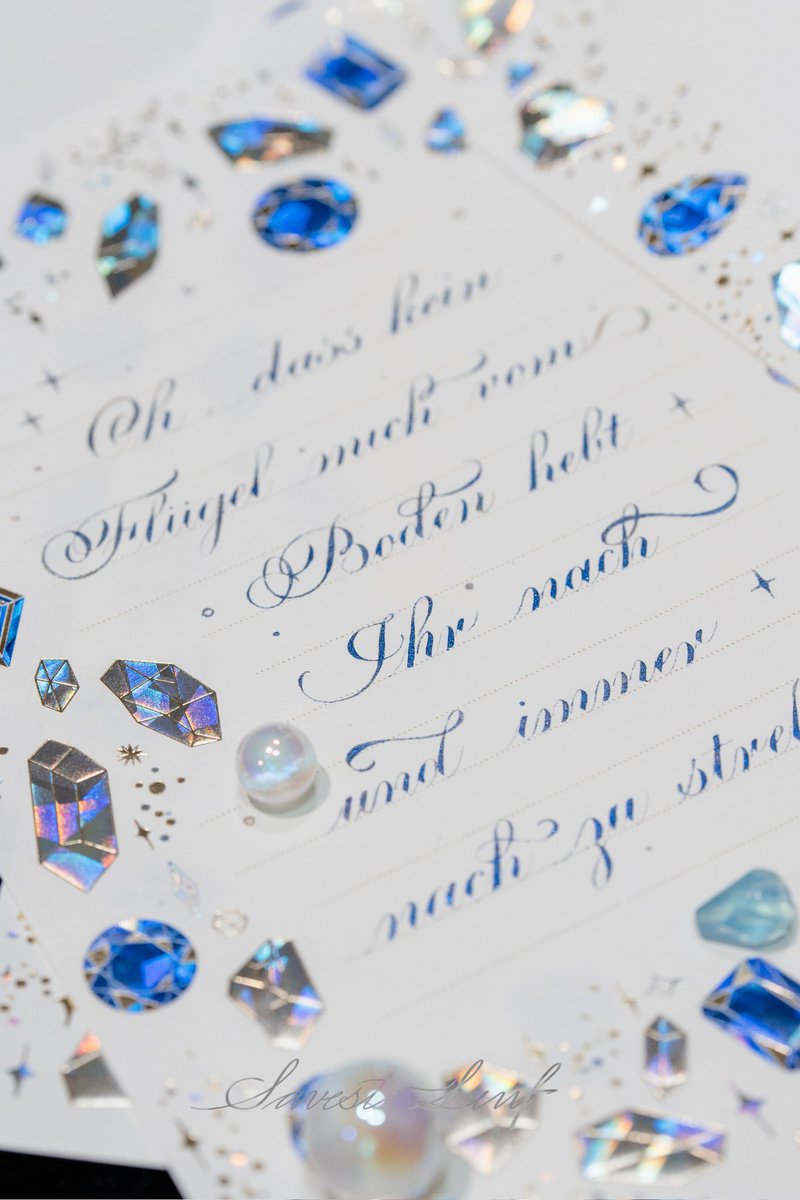 Oh, dass kein
Flügel mich vom
Boden hebt
Ihr nach
und immer
nach zu streb